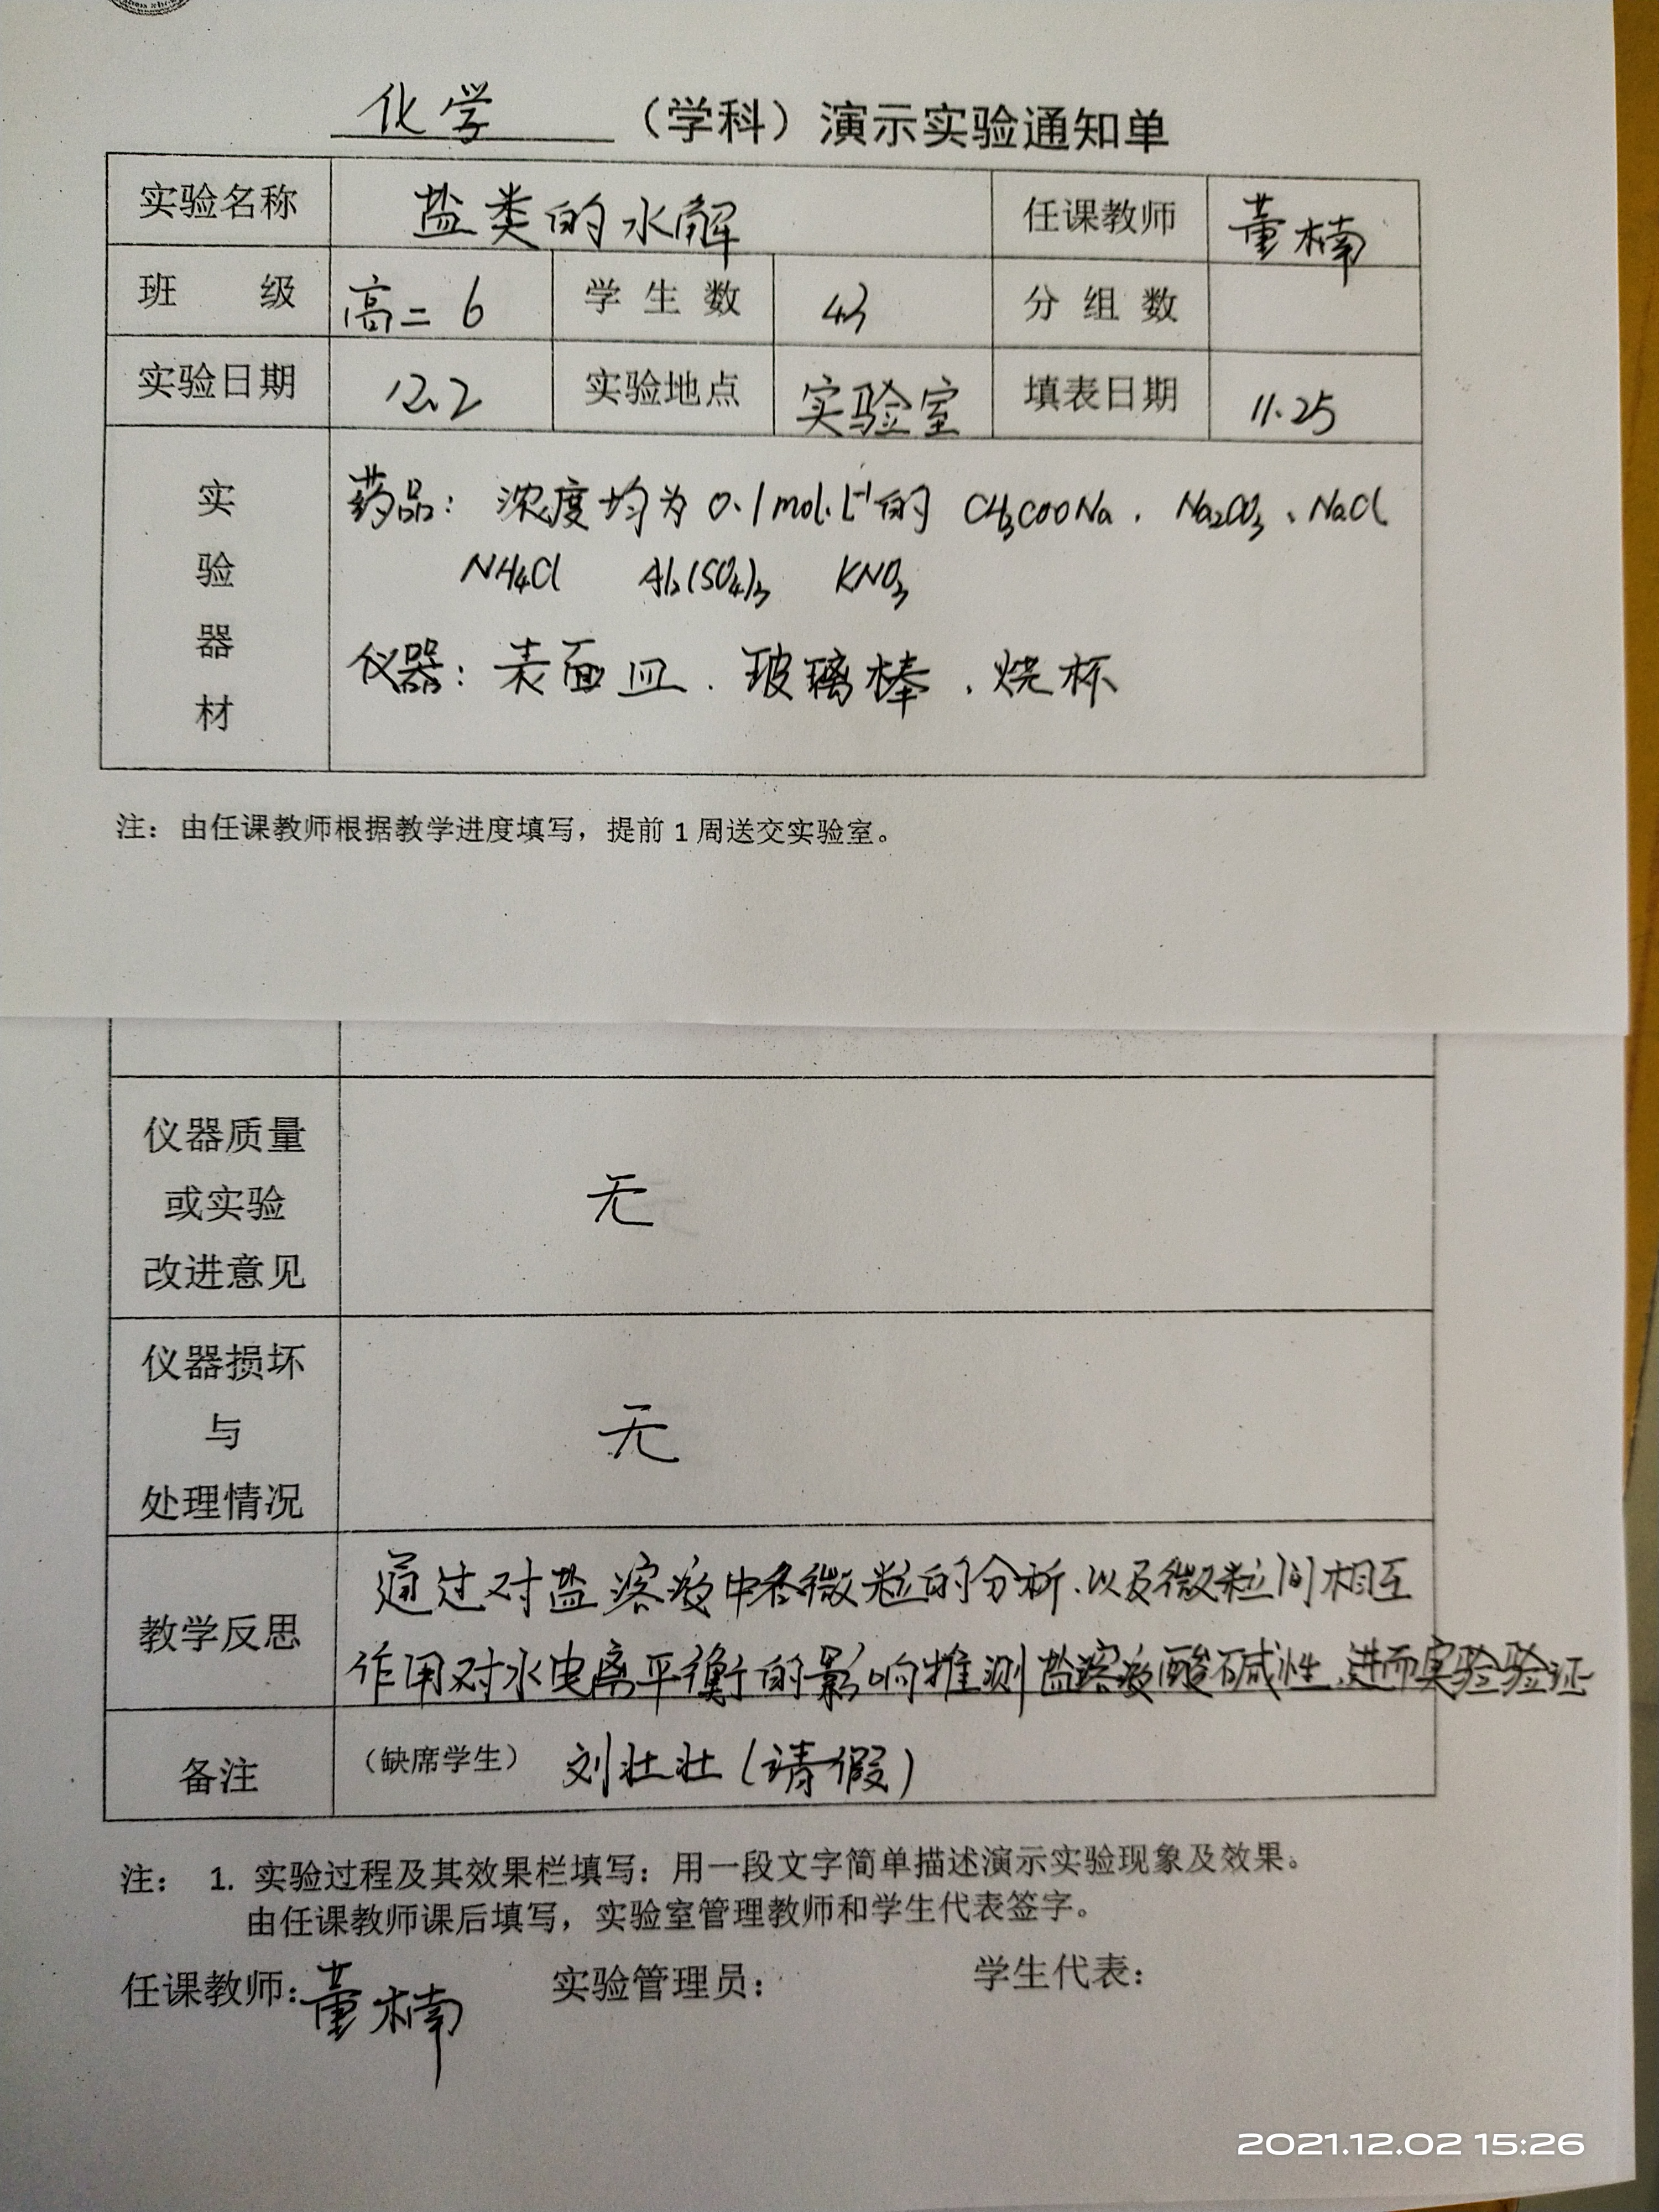 化学 （学科）演示实验通知单
实验名称 盐类的水解 任课教师 董楠
班 级 高二 6 学 生 数 43 分 组 数
实验日期 12.2 实验地点 实验室 填表日期 11.25
实验器材
药品：浓度均为0.1mol·L⁻¹的 CH₃COONa、Na₂CO₃、NaCl
NH₄Cl Al₂(SO₄)₃ KNO₃
仪器：表面皿、玻璃棒、烧杯
注：由任课教师根据教学进度填写，提前 1 周送交实验室。
仪器质量
或实验
改进意见
无
仪器损坏
与
处理情况
无
教学反思
通过对盐溶液中各微粒的分析、以及微粒间相互
作用对水电离平衡的影响推测盐溶液酸碱性、进而实验验证
备注 （缺席学生） 刘壮壮（请假）
注： 1. 实验过程及其效果栏填写：用一段文字简单描述演示实验现象及效果。
由任课教师课后填写，实验室管理教师和学生代表签字。
任课教师：董楠 实验管理员： 学生代表：
2021.12.02 15:26